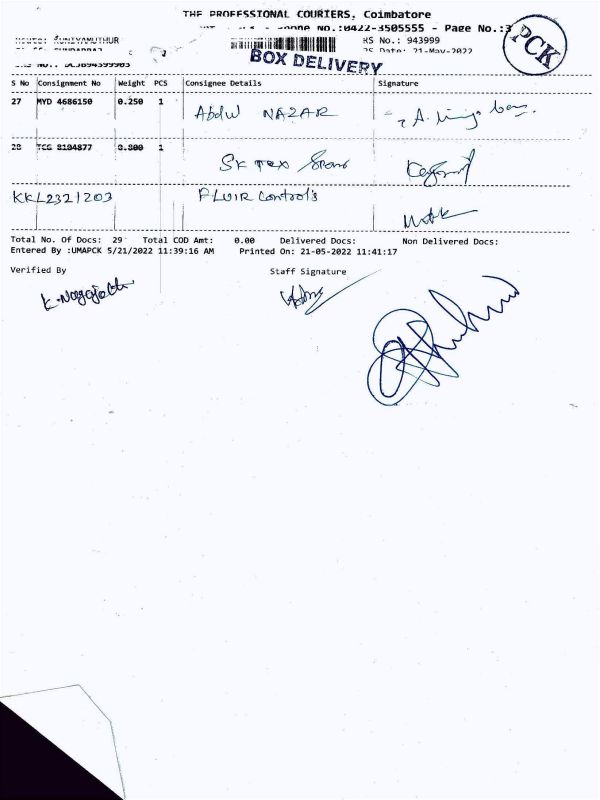 THE PROFESSIONAL COURIERS, Coimbatore
Phone No.:0422-3505555 - Page No.:3
PCK
KUNIYAMUTHUR
RS No.: 943999
21-May-2022
BOX DELIVERY
S No Consignment No Weight PCS Consignee Details Signature
27 MYD 4686150 0.250 1 Abdul NAZAR
28 TCG 8104877 0.800 1 SK Tex
KKL2321203 FLUIR Control's
Total No. Of Docs: 29 Total COD Amt: 0.00 Delivered Docs: Non Delivered Docs:
Entered By :UMAPCK 5/21/2022 11:39:16 AM Printed On: 21-05-2022 11:41:17
Verified By Staff Signature